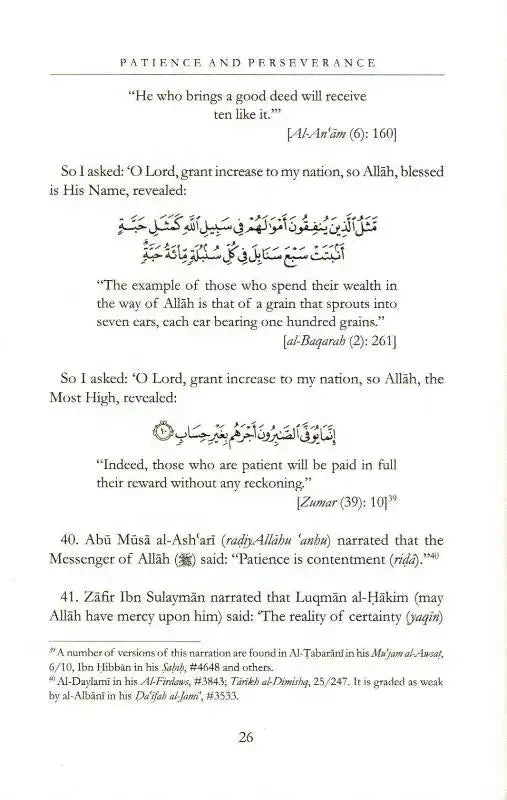 PATIENCE AND PERSEVERANCE
“He who brings a good deed will receive
ten like it.”’
[Al-An‘ām (6): 160]
So I asked: ‘O Lord, grant increase to my nation, so Allāh, blessed
is His Name, revealed:
مَّثَلُ ٱلَّذِينَ يُنفِقُونَ أَمْوَٰلَهُمْ فِى سَبِيلِ ٱللَّهِ كَمَثَلِ حَبَّةٍ
أَنۢبَتَتْ سَبْعَ سَنَابِلَ فِى كُلِّ سُنۢبُلَةٍ مِّا۟ئَةُ حَبَّةٍ
“The example of those who spend their wealth in
the way of Allāh is that of a grain that sprouts into
seven ears, each ear bearing one hundred grains.”
[al-Baqarah (2): 261]
So I asked: ‘O Lord, grant increase to my nation, so Allāh, the
Most High, revealed:
إِنَّمَا يُوَفَّى ٱلصَّٰبِرُونَ أَجْرَهُم بِغَيْرِ حِسَابٍ ١٠
“Indeed, those who are patient will be paid in full
their reward without any reckoning.”
[Zumar (39): 10]³⁹
40. Abū Mūsā al-Ash‘arī (raḍiyAllāhu ‘anhu) narrated that the
Messenger of Allāh (ﷺ) said: “Patience is contentment (riḍā).”⁴⁰
41. Zāfir Ibn Sulaymān narrated that Luqmān al-Ḥākim (may
Allāh have mercy upon him) said: ‘The reality of certainty (yaqīn)
³⁹ A number of versions of this narration are found in Al-Ṭabarānī in his Mu‘jam al-Awsaṭ,
6/10, Ibn Ḥibbān in his Ṣaḥīḥ, #4648 and others.
⁴⁰ Al-Daylamī in his Al-Firdaws, #3843; Tārīkh al-Dimishq, 25/247. It is graded as weak
by al-Albānī in his Ḍa‘īfah al-Jami‘, #3533.
26